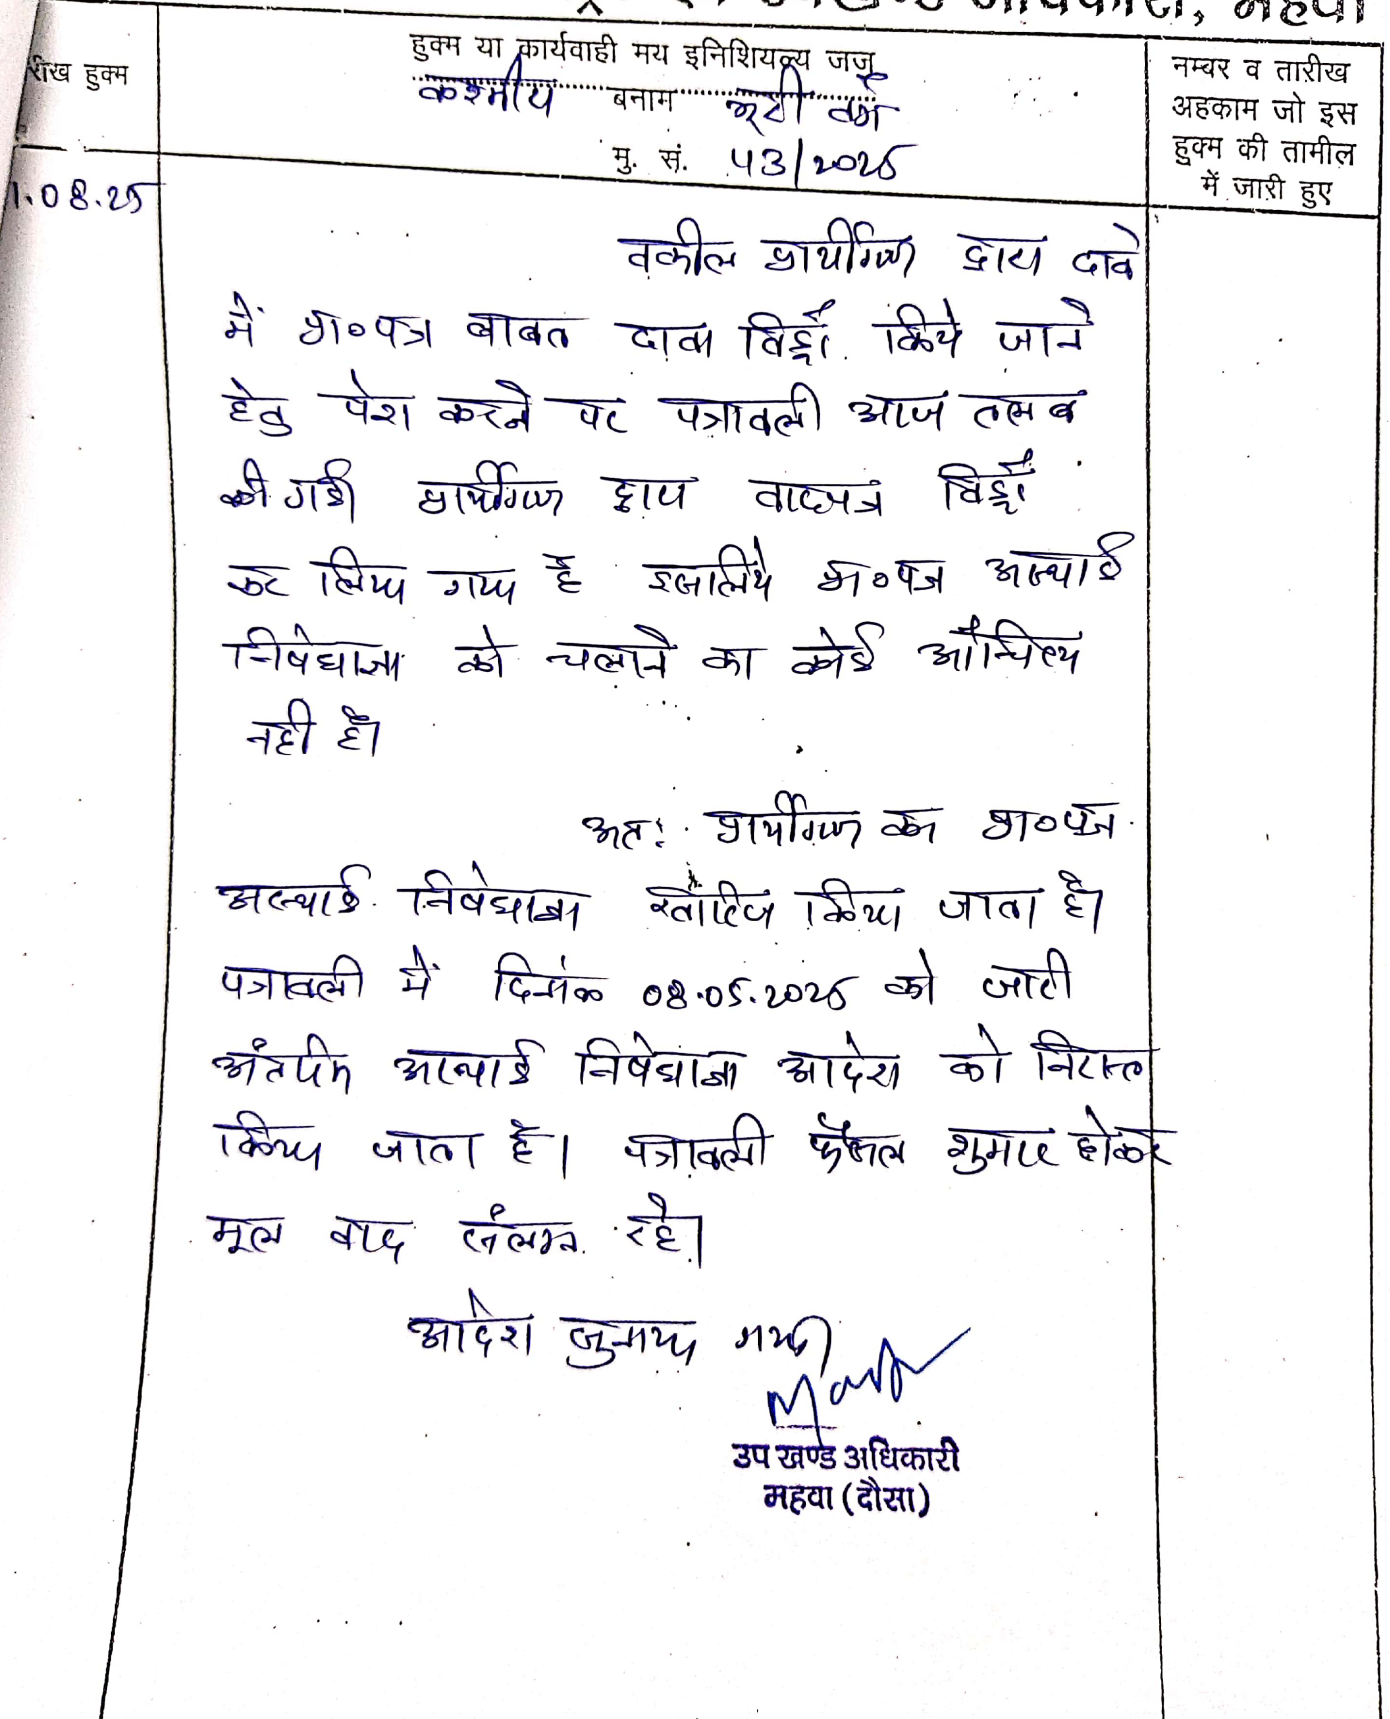 उपखण्ड अधिकारी, महवा
हुक्म या कार्यवाही मय इनिशियल्य जज
रीख हुक्म
नम्बर व तारीख
अहकाम जो इस
हुक्म की तामील
में जारी हुए
बनाम
मु. सं. 43/2025
1.08.25
वकील प्रार्थीगण द्वारा दावे
में प्रा०पत्र बाबत दावा विड्रॉ किये जाने
हेतु पेश करने पर पत्रावली आज तलब
की गई प्रार्थीगण द्वारा वादपत्र विड्रॉ
कर लिया गया है इसलिये प्रा०पत्र अस्थाई
निषेधाज्ञा को चलाने का कोई औचित्य
नही है।
अतः प्रार्थीगण का प्रा०पत्र
अस्थाई निषेधाज्ञा खारिज किया जाता है।
पत्रावली में दिनांक 08.05.2025 को जारी
अंतरिम अस्थाई निषेधाज्ञा आदेश को निरस्त
किया जाता है। पत्रावली फैसल शुमार होकर
मूल वाद संलग्न रहे।
आदेश सुनाया गया
उप खण्ड अधिकारी
महवा (दौसा)